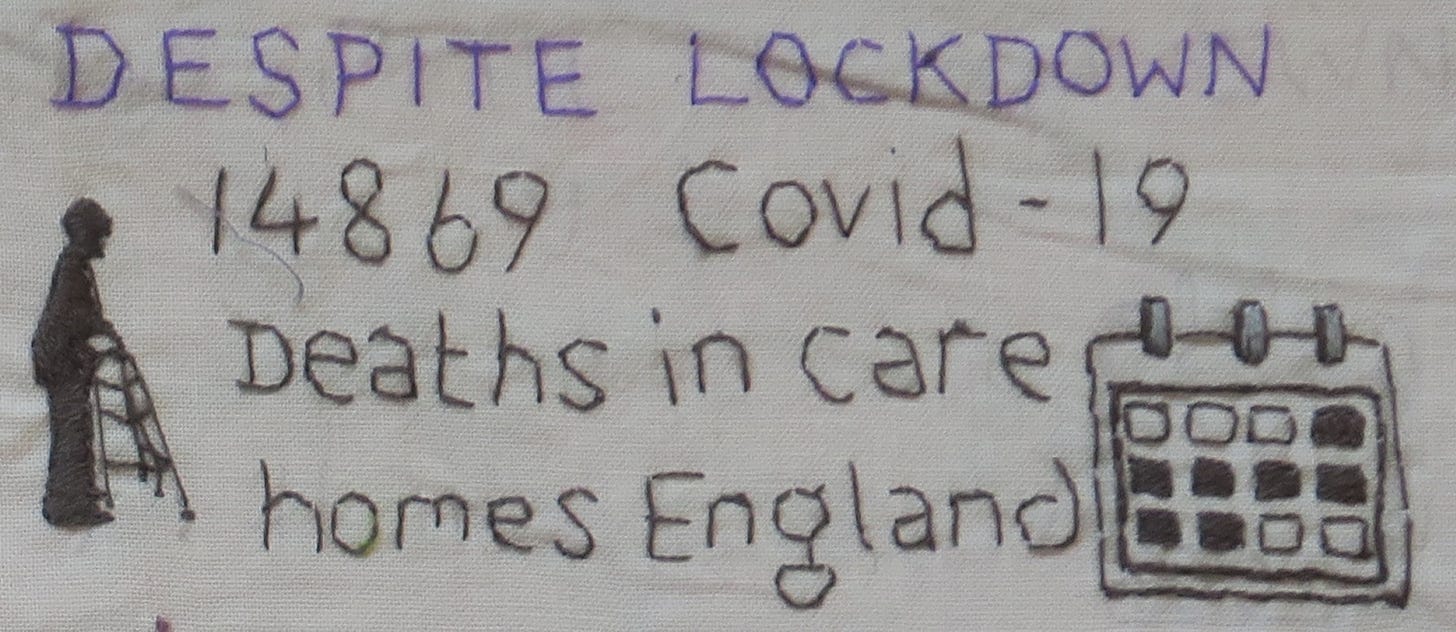 DESPITE LOCKDOWN
14869 Covid-19
Deaths in care
homes England